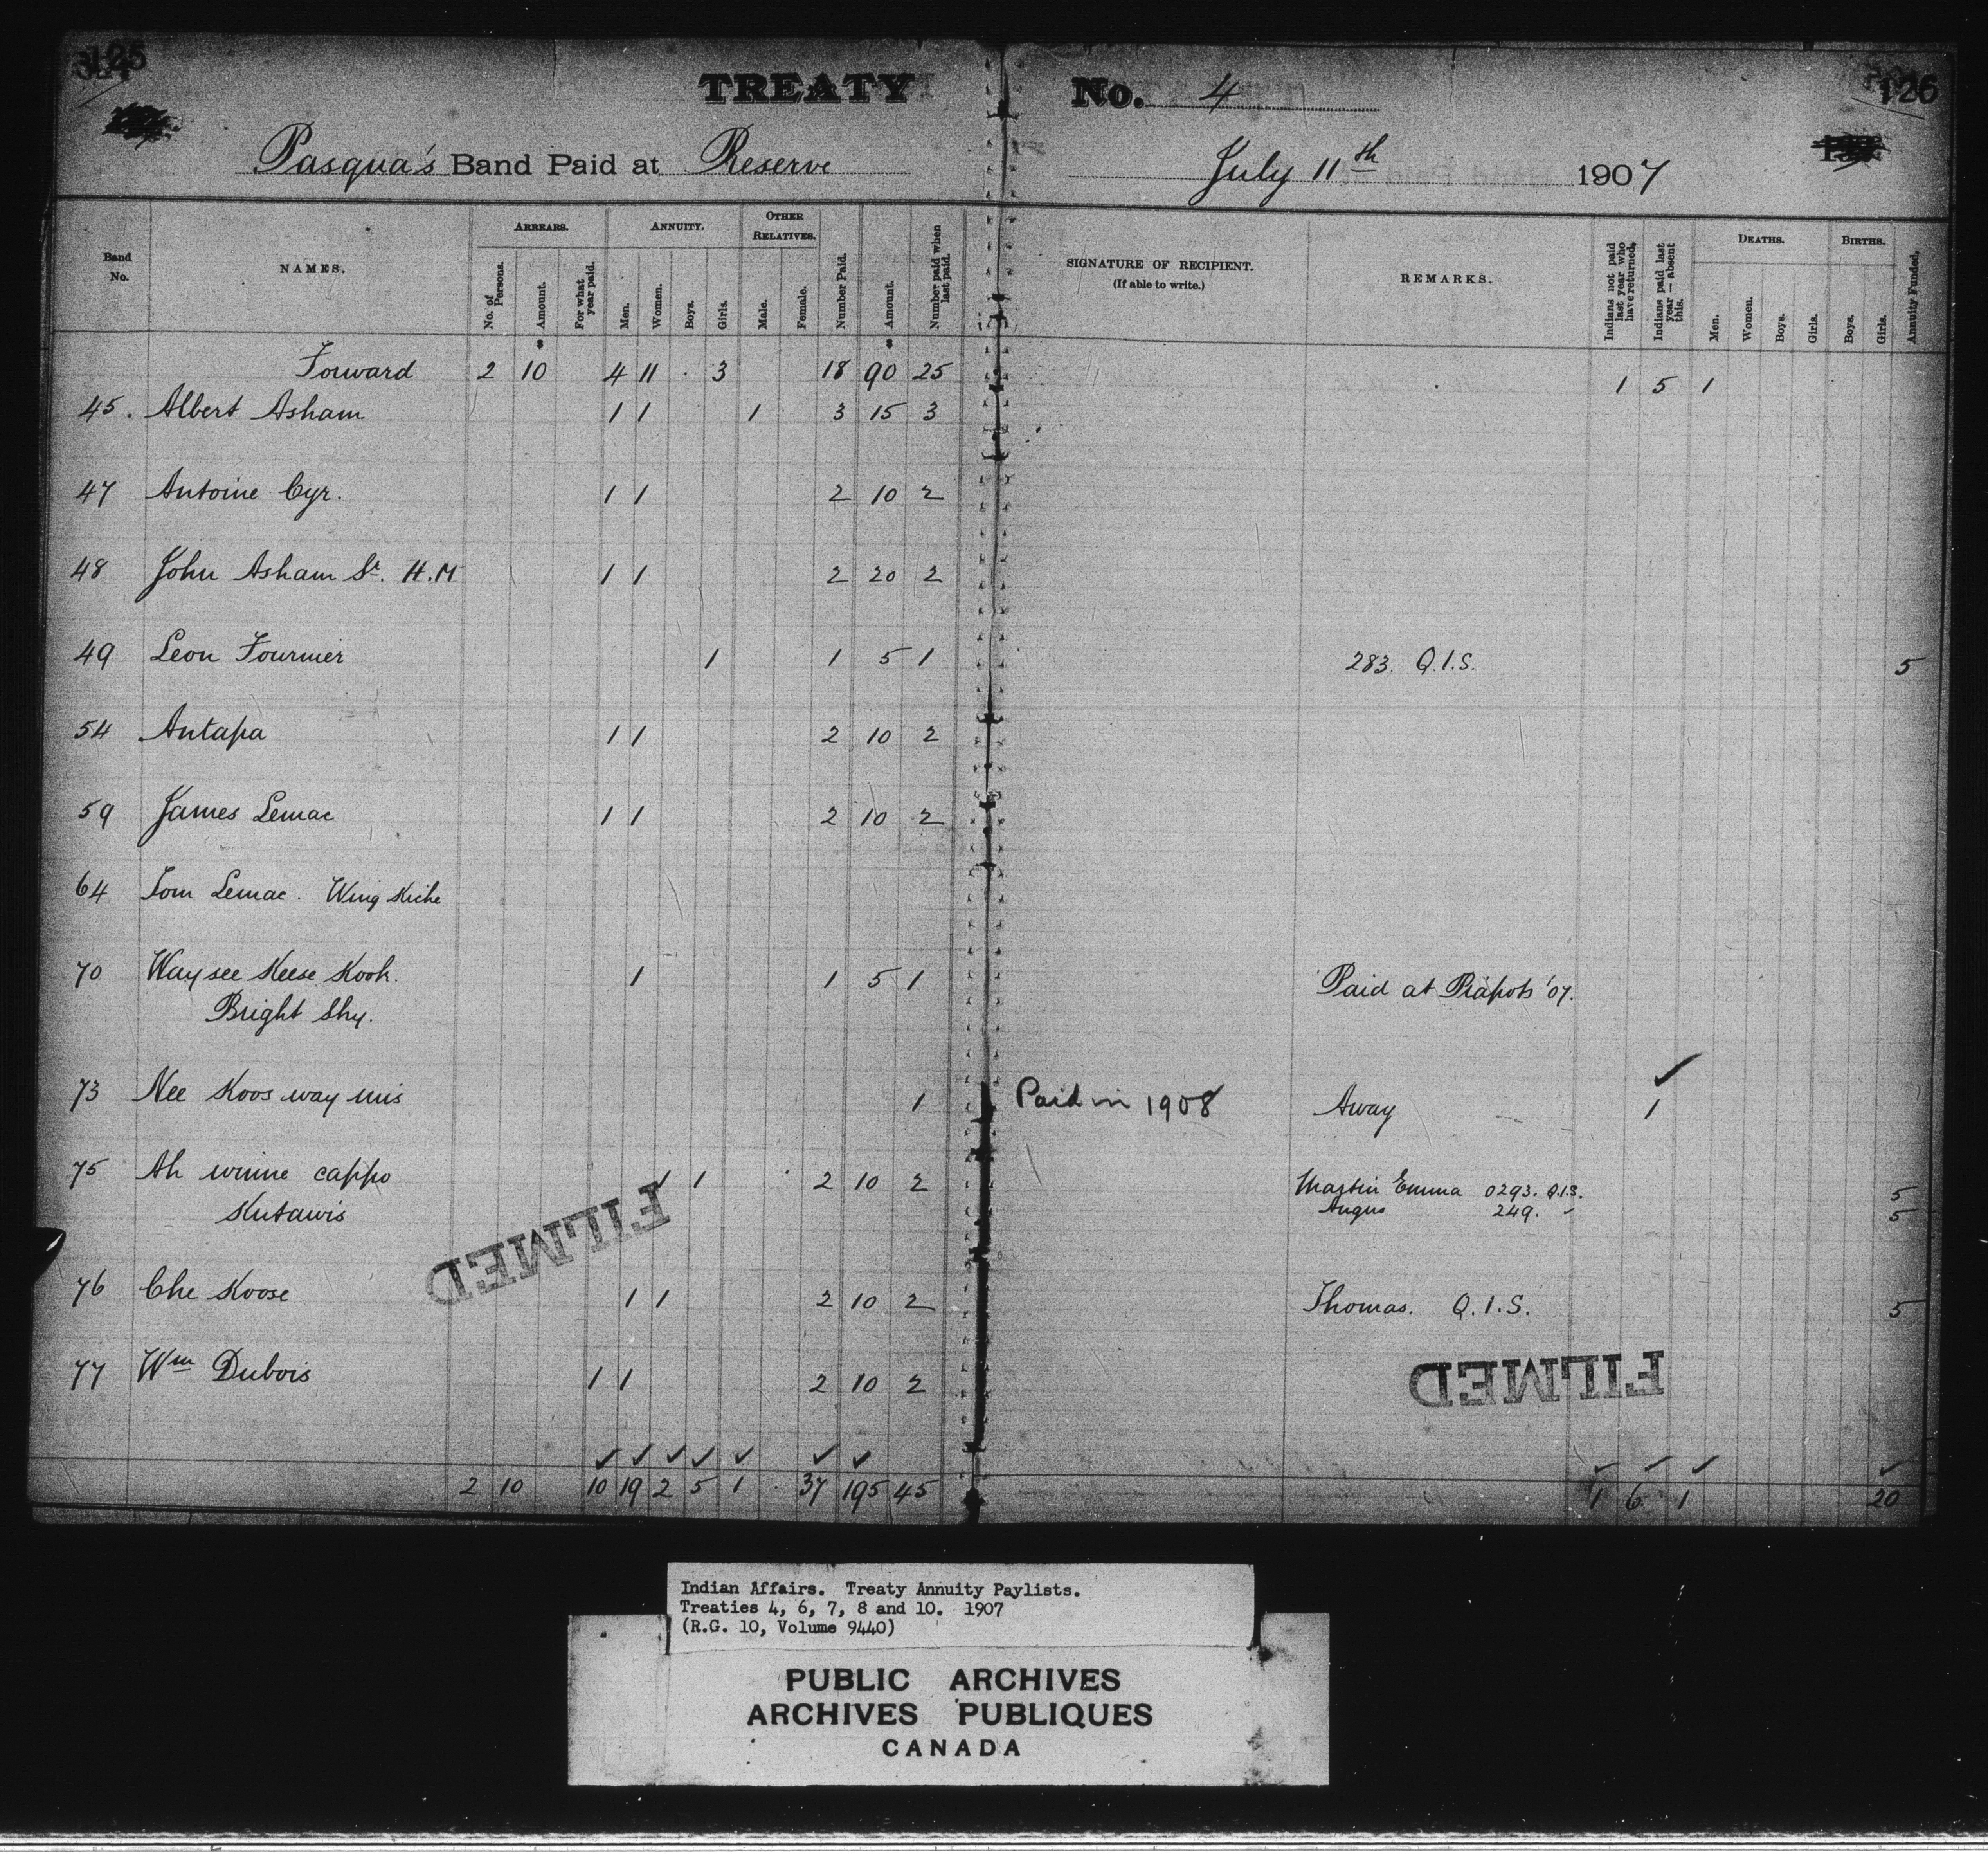 125
126
TREATY No. 4
Pasqua's Band Paid at Reserve July 11th 1907
Band No.
NAMES.
ARREARS.
No. of Persons.
Amount.
For what year paid.
ANNUITY.
Men.
Women.
Boys.
Girls.
OTHER RELATIVES.
Male.
Female.
Number Paid.
Amount.
Number paid when last paid.
SIGNATURE OF RECIPIENT.
(If able to write.)
REMARKS.
Indians not paid last year who have returned.
Indians paid last year — absent this.
DEATHS.
Men.
Women.
Boys.
Girls.
BIRTHS.
Boys.
Girls.
Annuity Funded.
Forward 2 10 4 11 3 18 90 25 1 5 1
45. Albert Asham 1 1 1 3 15 3
47 Antoine Cyr. 1 1 2 10 2
48 John Asham Sr. H.M 1 1 2 20 2
49 Leon Fournier 1 1 5 1 283. Q.I.S. 5
54 Antapa 1 1 2 10 2
59 James Lemac 1 1 2 10 2
64 Tom Lemac. Wing Kiche
70 Way see Keese Kook. 1 1 5 1 Paid at Piapots '07.
Bright Sky.
73 Nee Koos way mis 1 Paid in 1908 Away 1
75 Ah winne cappo 1 1 2 10 2 Martin Emma 0293. Q.I.S. 5
Kutawis Angus 249. " 5
76 Che Koose 1 1 2 10 2 Thomas. Q.I.S. 5
77 Wm Dubois 1 1 2 10 2
FILMED
FILMED
2 10 10 19 2 5 1 37 195 45 1 6 1 20
Indian Affairs. Treaty Annuity Paylists.
Treaties 4, 6, 7, 8 and 10. 1907
(R.G. 10, Volume 9440)
PUBLIC ARCHIVES
ARCHIVES PUBLIQUES
CANADA